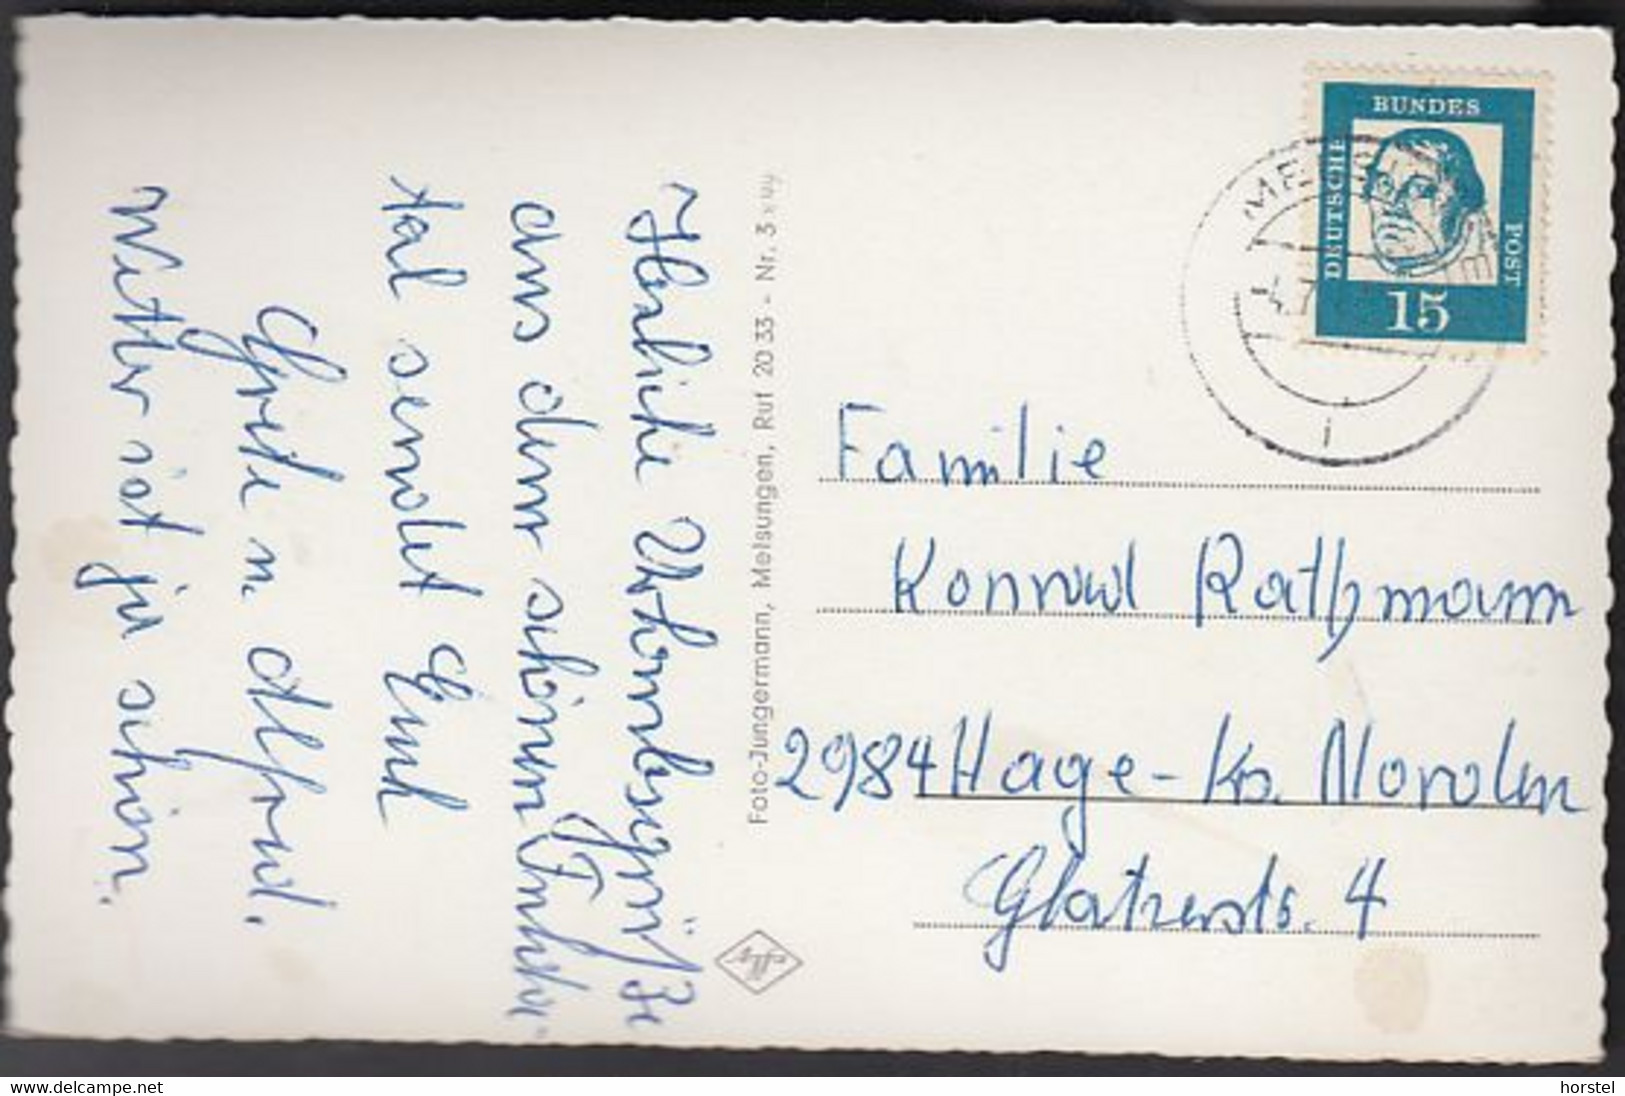 Herzliche Urlaubsgrüße
aus dem schönen Fulda-
tal sendet Euch
Grete u. Alfred.
Wetter ist ja schön.
Foto-Jungermann, Melsungen, Ruf 20 33 - Nr. 3
BUNDES
DEUTSCHE
POST
15
Familie
Konrad Rathmann
2984 Hage - Krs. Norden
Glatzerstr. 4
www.delcampe.net
horstel